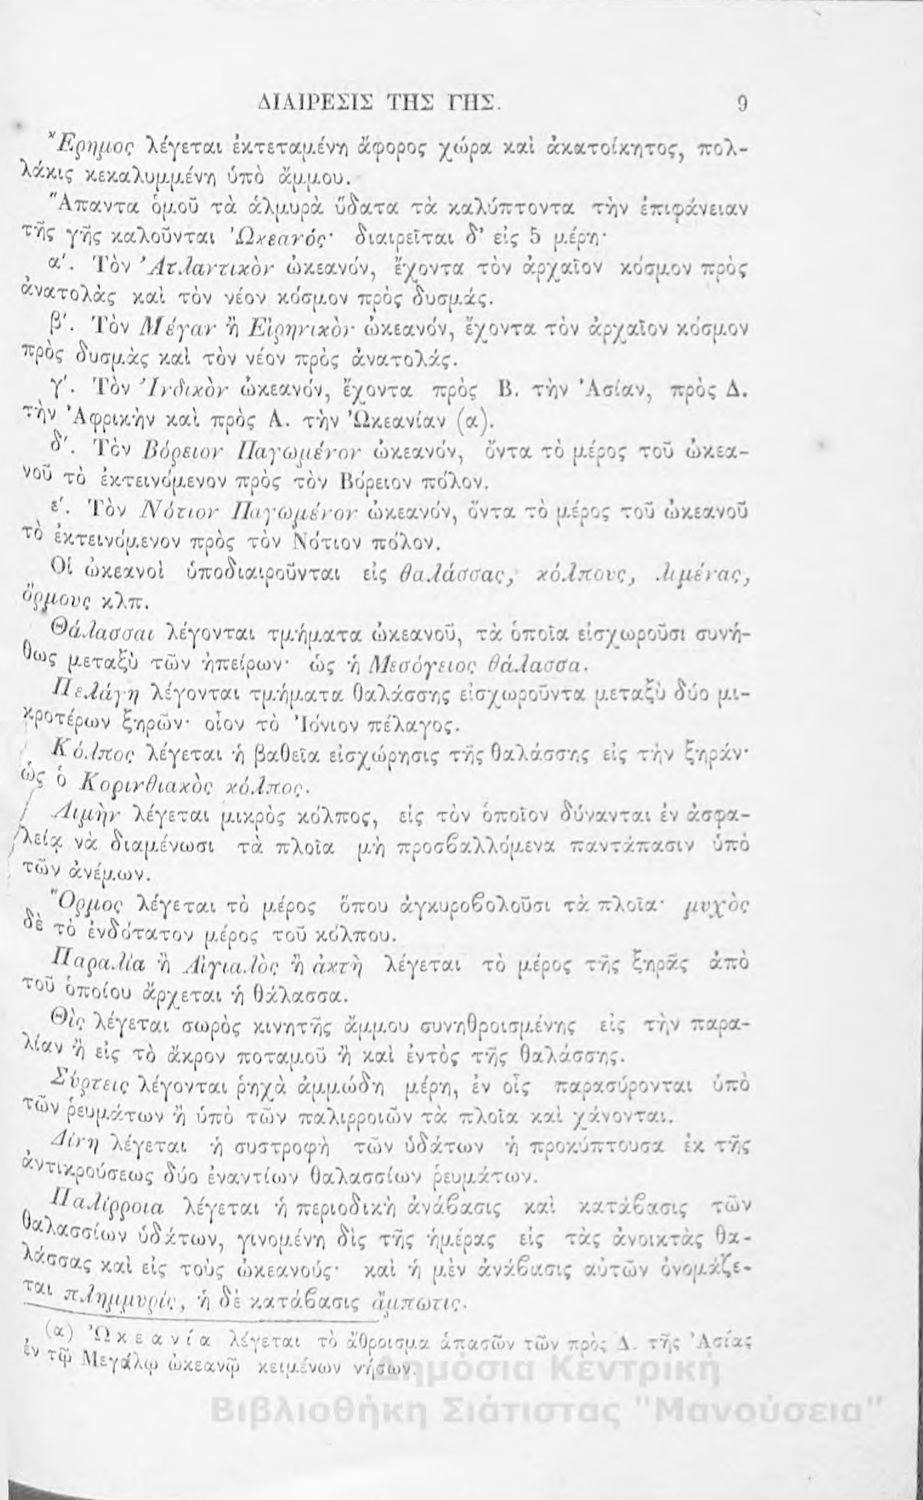 ΔΙΑΙΡΕΣΙΣ ΤΗΣ ΓΗΣ. 9
Ἔρημος λέγεται ἐκτεταμένη ἄφορος χώρα καὶ ἀκατοίκητος, πολ-
λάκις κεκαλυμμένη ὑπὸ ἄμμου.
Ἅπαντα ὁμοῦ τὰ ἁλμυρὰ ὕδατα τὰ καλύπτοντα τὴν ἐπιφάνειαν
τῆς γῆς καλοῦνται Ὠκεανός· διαιρεῖται δ' εἰς 5 μέρη·
α′. Τὸν Ἀτλαντικὸν ὠκεανόν, ἔχοντα τὸν ἀρχαῖον κόσμον πρὸς
ἀνατολὰς καὶ τὸν νέον κόσμον πρὸς δυσμάς.
β′. Τὸν Μέγαν ἢ Εἰρηνικὸν ὠκεανόν, ἔχοντα τὸν ἀρχαῖον κόσμον
πρὸς δυσμὰς καὶ τὸν νέον πρὸς ἀνατολάς.
γ′. Τὸν Ἰνδικὸν ὠκεανόν, ἔχοντα πρὸς Β. τὴν Ἀσίαν, πρὸς Δ.
τὴν Ἀφρικὴν καὶ πρὸς Α. τὴν Ὠκεανίαν (α).
δ′. Τὸν Βόρειον Παγωμένον ὠκεανόν, ὄντα τὸ μέρος τοῦ ὠκεα-
νοῦ τὸ ἐκτεινόμενον πρὸς τὸν Βόρειον πόλον.
ε′. Τὸν Νότιον Παγωμένον ὠκεανόν, ὄντα τὸ μέρος τοῦ ὠκεανοῦ
τὸ ἐκτεινόμενον πρὸς τὸν Νότιον πόλον.
Οἱ ὠκεανοὶ ὑποδιαιροῦνται εἰς θαλάσσας, κόλπους, λιμένας,
ὅρμους κλπ.
Θάλασσαι λέγονται τμήματα ὠκεανοῦ, τὰ ὁποῖα εἰσχωροῦσι συνή-
θως μεταξὺ τῶν ἠπείρων· ὡς ἡ Μεσόγειος θάλασσα.
Πελάγη λέγονται τμήματα θαλάσσης εἰσχωροῦντα μεταξὺ δύο μι-
κροτέρων ξηρῶν· οἷον τὸ Ἰόνιον πέλαγος.
Κόλπος λέγεται ἡ βαθεῖα εἰσχώρησις τῆς θαλάσσης εἰς τὴν ξηράν·
ὡς ὁ Κορινθιακὸς κόλπος.
Λιμὴν λέγεται μικρὸς κόλπος, εἰς τὸν ὁποῖον δύνανται ἐν ἀσφα-
λείᾳ νὰ διαμένωσι τὰ πλοῖα μὴ προσβαλλόμενα παντάπασιν ὑπὸ
τῶν ἀνέμων.
Ὅρμος λέγεται τὸ μέρος ὅπου ἀγκυροβολοῦσι τὰ πλοῖα· μυχὸς
δὲ τὸ ἐνδότατον μέρος τοῦ κόλπου.
Παραλία ἢ Αἰγιαλὸς ἢ ἀκτὴ λέγεται τὸ μέρος τῆς ξηρᾶς ἀπὸ
τοῦ ὁποίου ἄρχεται ἡ θάλασσα.
Θὶς λέγεται σωρὸς κινητῆς ἄμμου συνηθροισμένης εἰς τὴν παρα-
λίαν ἢ εἰς τὸ ἄκρον ποταμοῦ ἢ καὶ ἐντὸς τῆς θαλάσσης.
Σύρτεις λέγονται ῥηχὰ ἀμμώδη μέρη, ἐν οἷς παρασύρονται ὑπὸ
τῶν ῥευμάτων ἢ ὑπὸ τῶν παλιρροιῶν τὰ πλοῖα καὶ χάνονται.
Δίνη λέγεται ἡ συστροφὴ τῶν ὑδάτων ἡ προκύπτουσα ἐκ τῆς
ἀντικρούσεως δύο ἐναντίων θαλασσίων ῥευμάτων.
Παλίρροια λέγεται ἡ περιοδικὴ ἀνάβασις καὶ κατάβασις τῶν
θαλασσίων ὑδάτων, γινομένη δὶς τῆς ἡμέρας εἰς τὰς ἀνοικτὰς θα-
λάσσας καὶ εἰς τοὺς ὠκεανούς· καὶ ἡ μὲν ἀνάβασις αὐτῶν ὀνομάζε-
ται πλημμυρίς, ἡ δὲ κατάβασις ἄμπωτις.
(α) Ὠκεανία λέγεται τὸ ἄθροισμα ἁπασῶν τῶν πρὸς Δ. τῆς Ἀσίας
ἐν τῷ Μεγάλῳ ὠκεανῷ κειμένων νήσων.
Δημόσια Κεντρική
Βιβλιοθήκη Σιάτιστας "Μανούσεια"